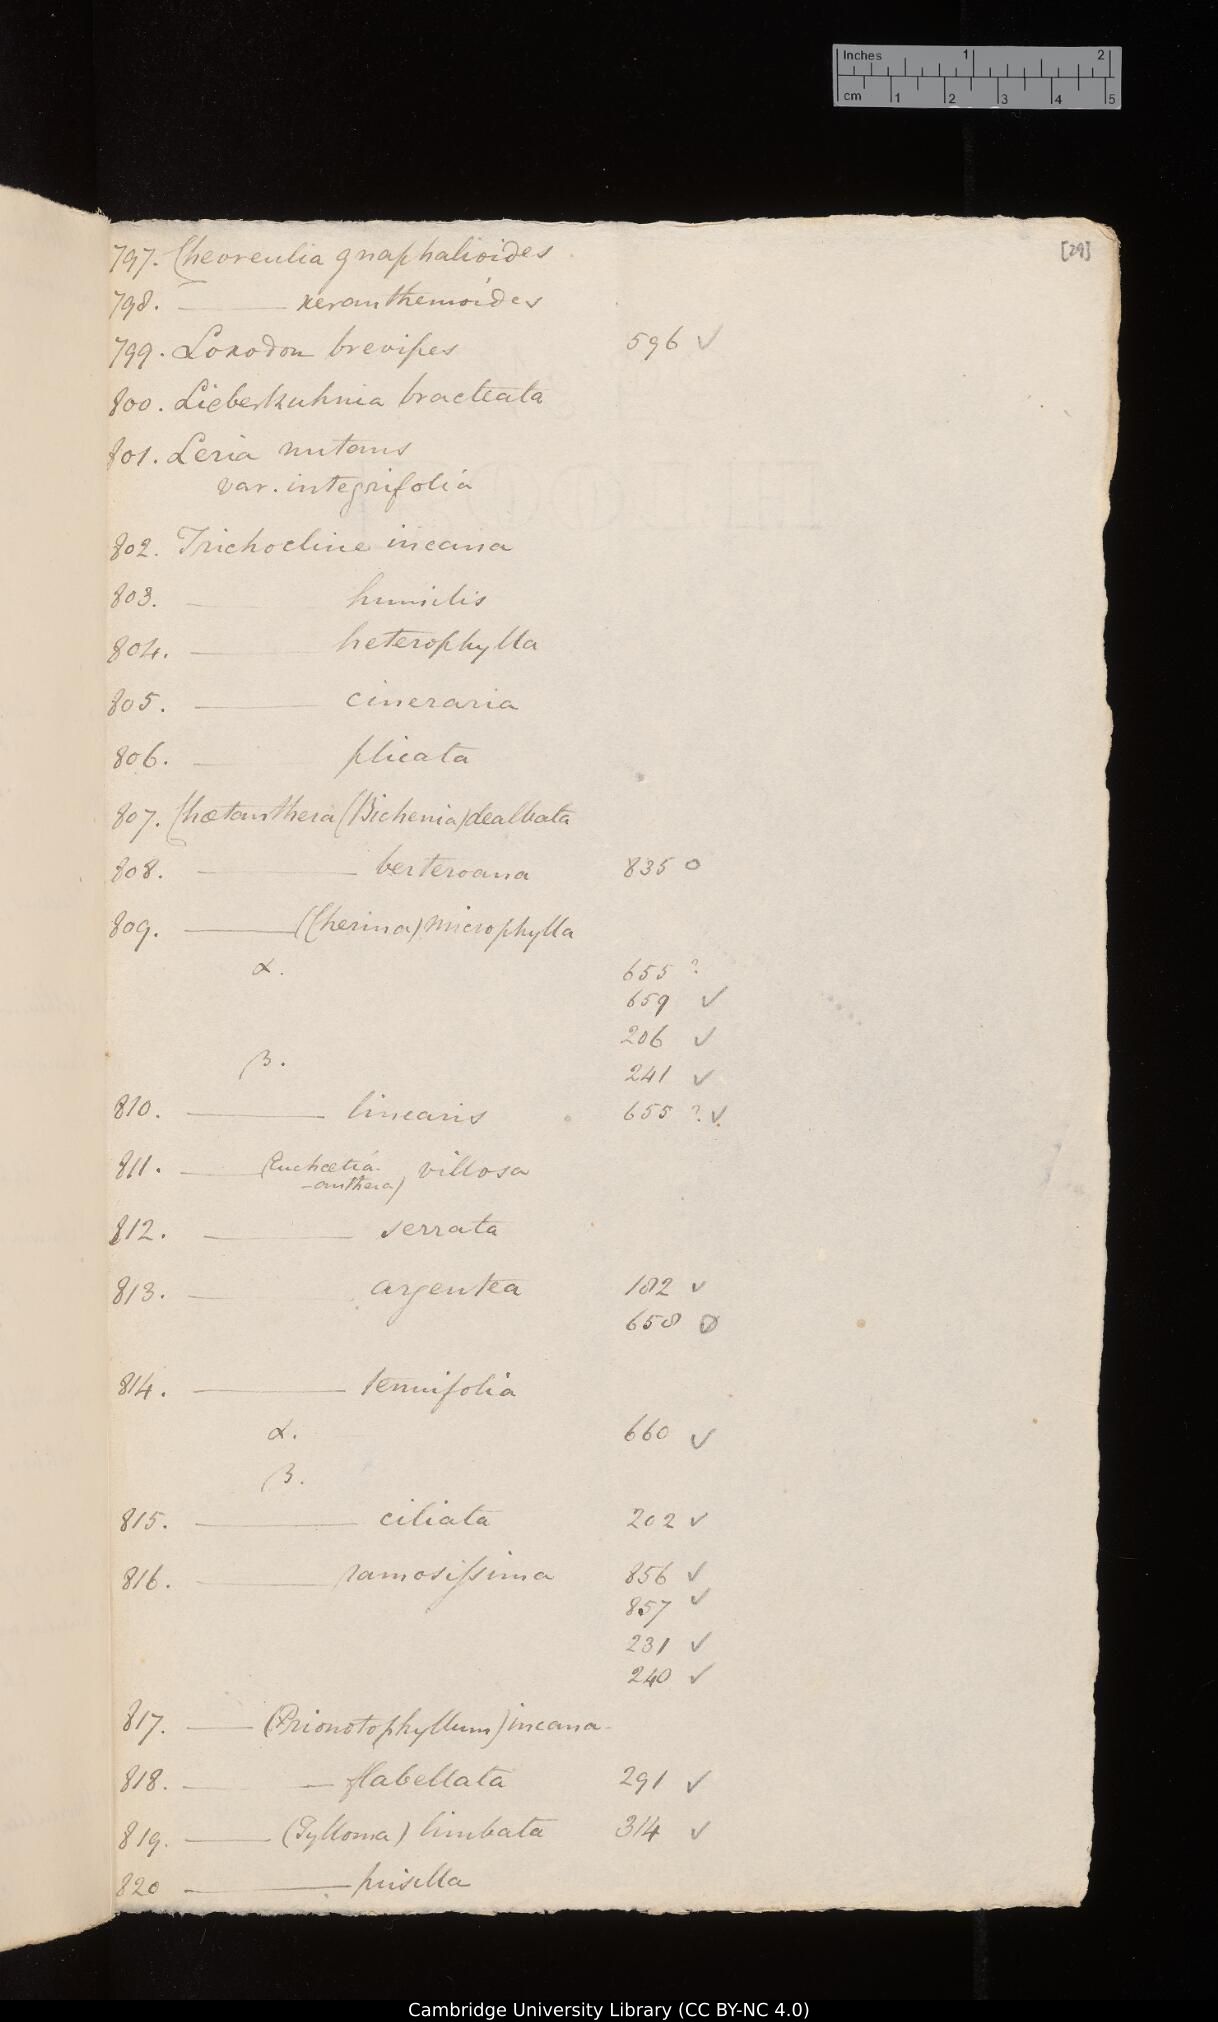 Inches 1 2
cm 1 2 3 4 5
[29]
797. Chevreulia gnaphalioides
798. ——— xeranthemoides
799. Loxodon brevipes 596 ✓
800. Lieberkuhnia bracteata
801. Leria nutans
var. integrifolia
802. Trichocline incana
803. ——— humilis
804. ——— heterophylla
805. ——— cineraria
806. ——— plicata
807. Chætanthera (Bichenia) dealbata
808. ——— berteroana 835 o
809. ——— (Cherina) microphylla
α. 655 ?
659 ✓
206 ✓
β. 241 ✓
810. ——— linearis 655 ? ✓
811. ——— (Euchætia
-anthera) villosa
812. ——— serrata
813. ——— argentea 182 ✓
658 ø
814. ——— tenuifolia
α. 660 ✓
β.
815. ——— ciliata 202 ✓
816. ——— ramosissima 856 ✓
857 ✓
231 ✓
240 ✓
817. ——— (Prionotophyllum) incana
818. ——— flabellata 291 ✓
819. ——— (Tylloma) limbata 314 ✓
820 ——— pusilla
Cambridge University Library (CC BY-NC 4.0)